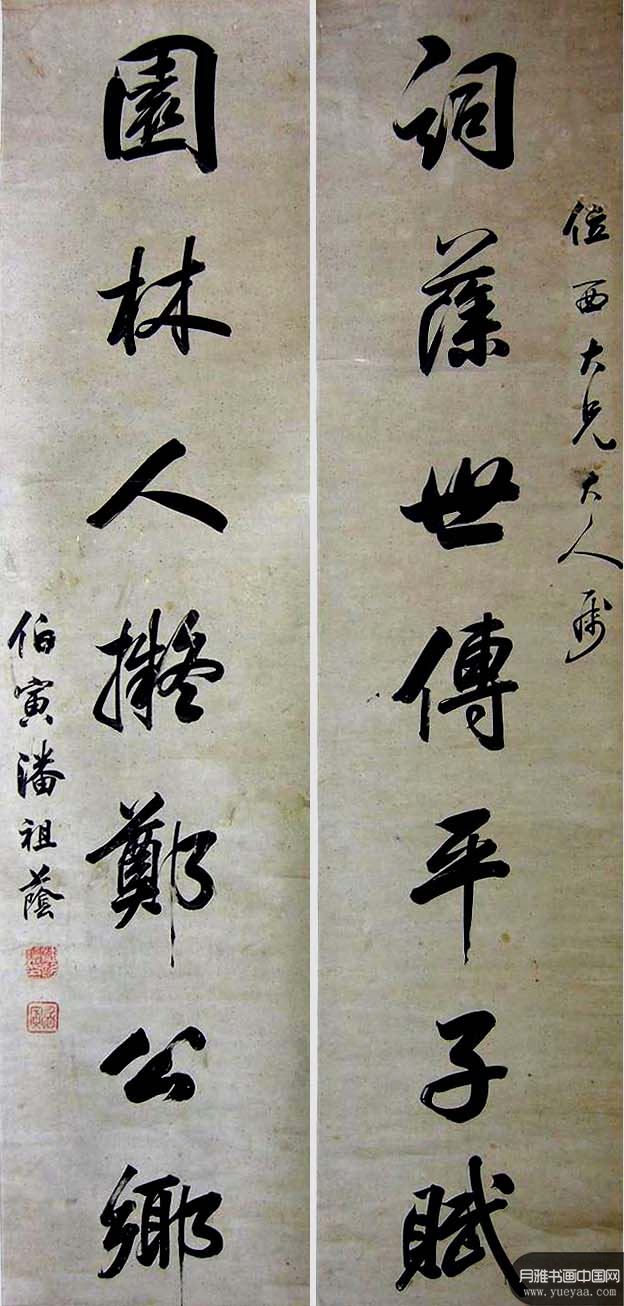 西大兄大人属
詞藻世傳平子賦
園林人擬鄭公鄉
伯寅潘祖蔭
月雅书画中国网
www.yueyaa.com